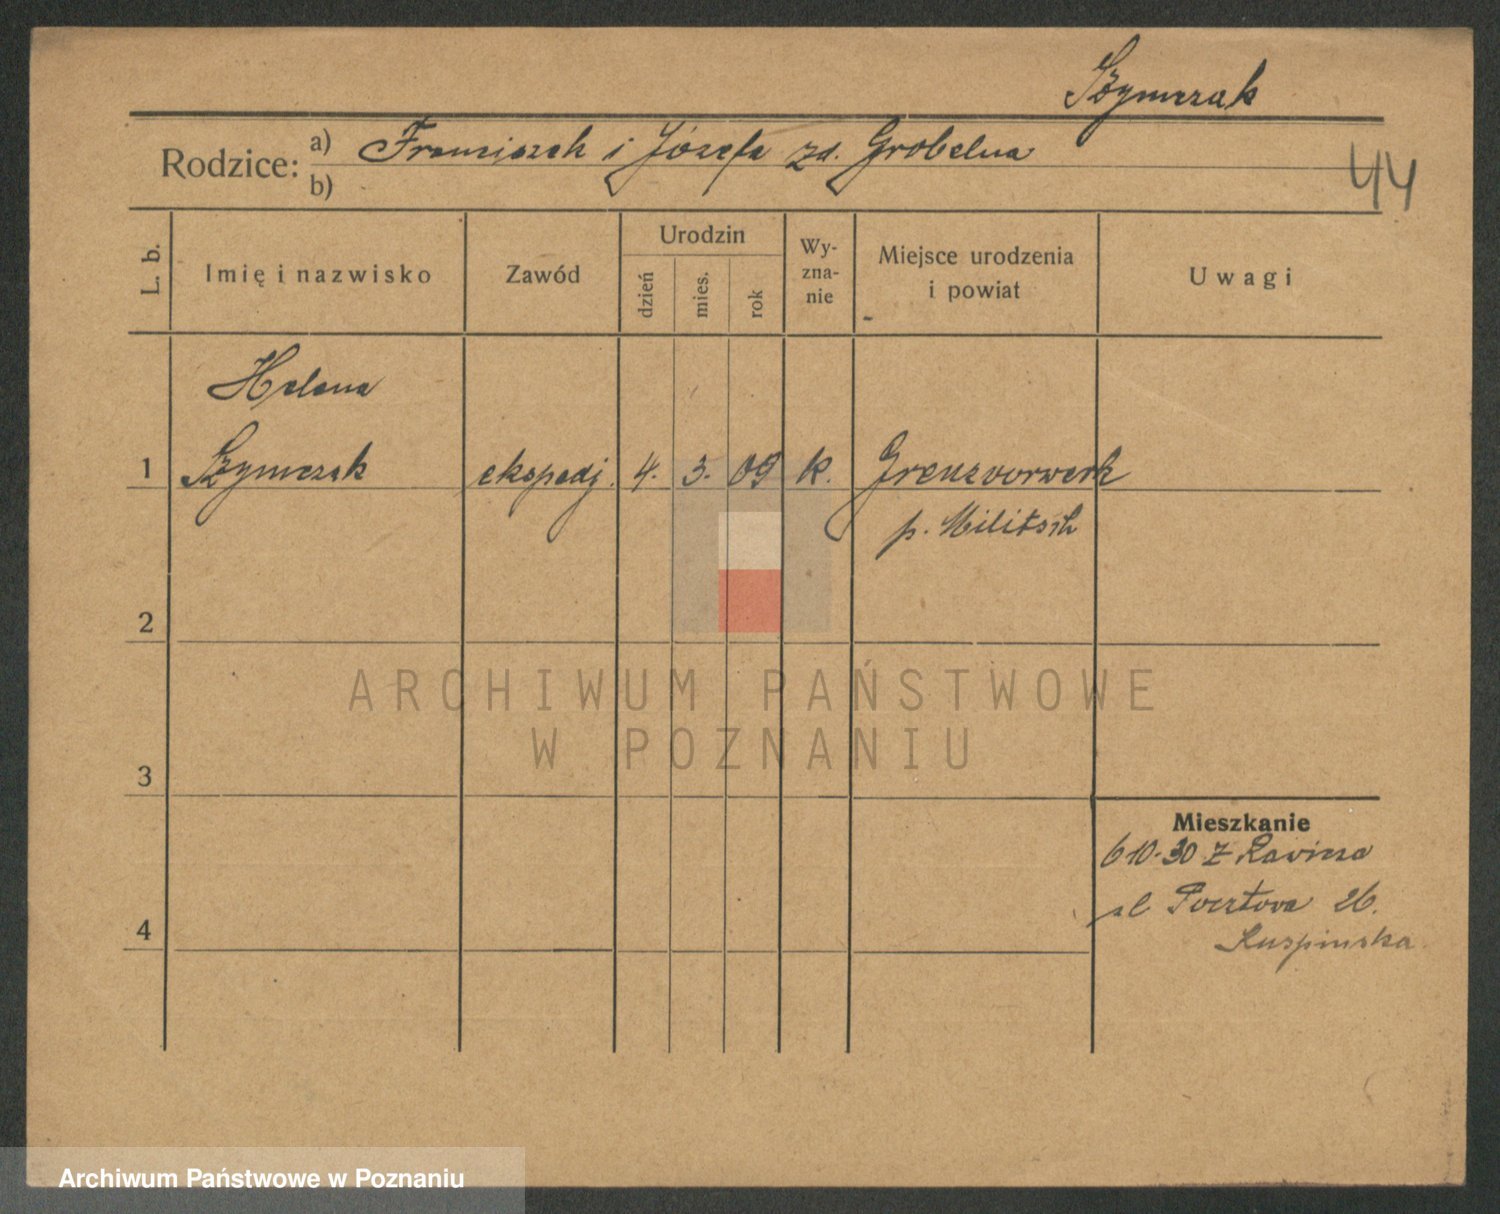 Szymczak
Rodzice: a) Franciszek i Józefa zd. Grobelna
b)
44
L. b.
Imię i nazwisko
Zawód
Urodzin
dzień
mies.
rok
Wy-
zna-
nie
Miejsce urodzenia
i powiat
Uwagi
Helena
1 Szymczak ekspedj. 4. 3. 09 k. Grenzvorwerk
p. Militsch
2
3
4
Mieszkanie
6 10-30 z Rawicza
ul Pocztowa 26.
ARCHIWUM PAŃSTWOWE
W POZNANIU
Archiwum Państwowe w Poznaniu